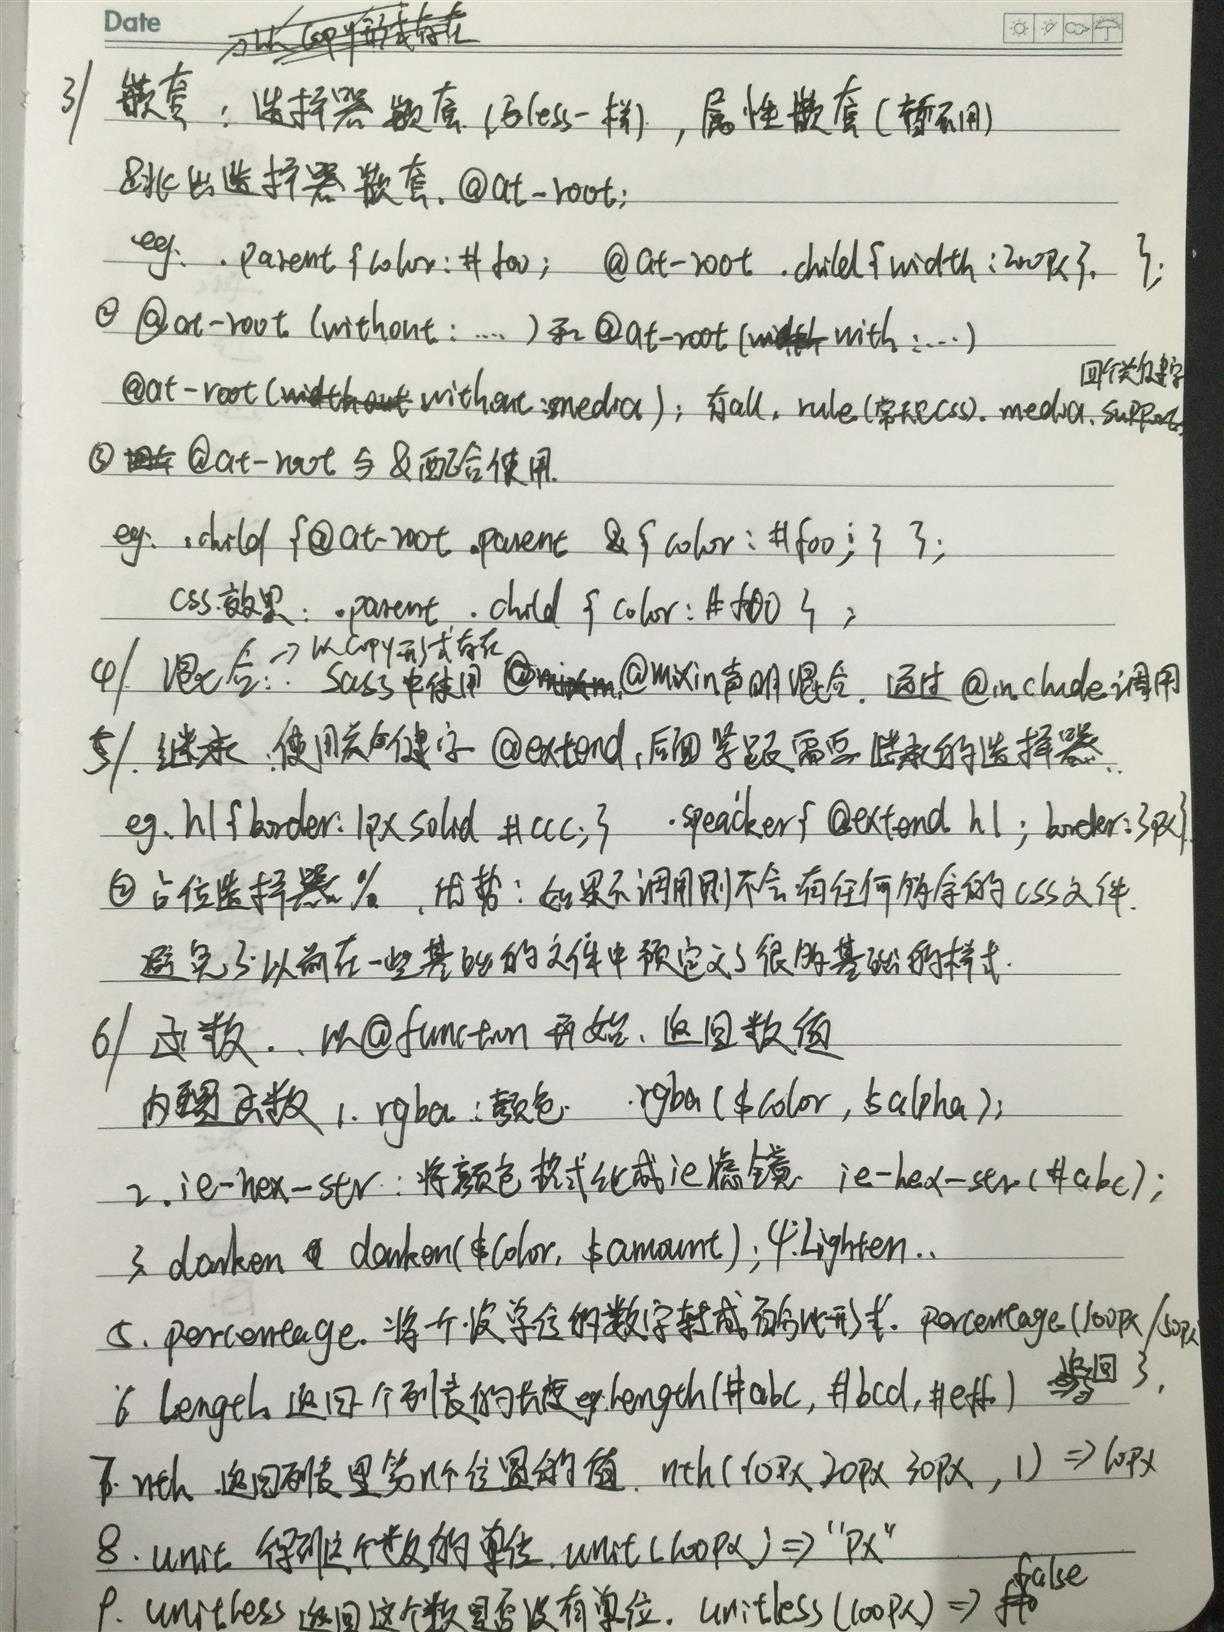 Date
3/ 嵌套：选择器嵌套（与less一样），属性嵌套（暂不用）
跳出选择器嵌套. @at-root;
eg: .parent{color:#f00; @at-root .child{width:200px}. };
② @at-root (without: ....) 和 @at-root (with:....)
四个关键字
@at-root (without:media); 有all. rule(常规css). media. support
③ @at-root 与 & 配合使用.
eg: .child {@at-root .parent &{color:#f00;} };
css效果: .parent .child {color:#f00};
→以copy形式存在
4/ 混合: Sass中使用 @mixin声明混合. 通过 @include调用
5/. 继承:使用关键字 @extend,后面紧跟需要继承的选择器.
eg. h1{border:1px solid #ccc;} .speacker{@extend h1; border:3px}
② 占位选择器%. 优势: 如果不调用则不会有任何多余的css文件.
避免了以前在一些基础的文件中预定义了很多基础的样式.
6/ 函数. 以@function开始. 返回数值
内置函数 1. rgba:颜色. rgba($color, $alpha);
2. ie-hex-str:将颜色格式化成ie滤镜 ie-hex-str(#abc);
3. darken darken($color, $amount); 4.Lighten..
5. percentage. 将一个没单位的数字转成百分比形式. percentage(100px/50px
6 Length 返回一个列表的长度 eg.Length(#abc, #bcd, #eff) 返回3,
7. nth 返回列表里第n个位置的值. nth(10px 20px 30px, 1) => 10px
8. unit 得到这个数的单位. unit(100px) => "px"
9. unitless 返回这个数是否没有单位. unitless(100px) => false